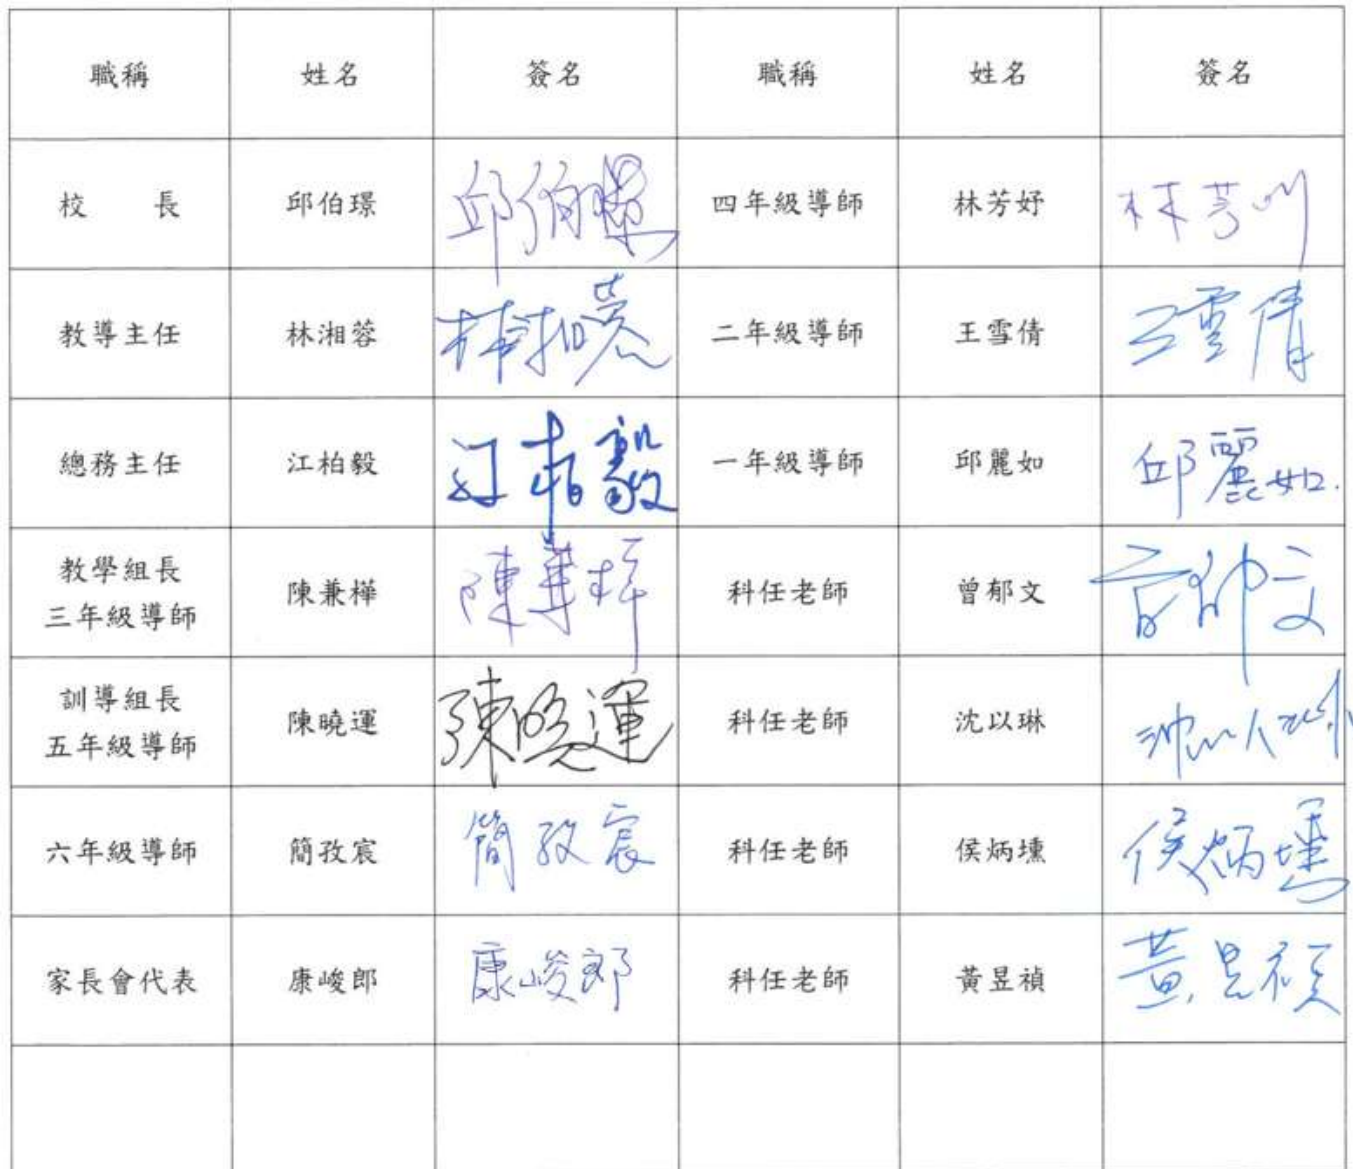 職稱 姓名 簽名 職稱 姓名 簽名
校 長 邱伯璟 邱伯璟 四年級導師 林芳妤 林芳
教導主任 林湘蓉 林湘蓉 二年級導師 王雪倩 王雪倩
總務主任 江柏毅 江柏毅 一年級導師 邱麗如 邱麗如
教學組長
三年級導師 陳兼樺 陳兼樺 科任老師 曾郁文 曾郁文
訓導組長
五年級導師 陳曉運 陳曉運 科任老師 沈以琳 沈以琳
六年級導師 簡孜宸 簡孜宸 科任老師 侯炳壎 侯炳壎
家長會代表 康峻郎 康峻郎 科任老師 黃昱禎 黃昱禎